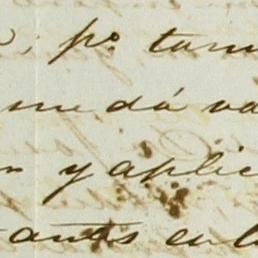 ; pº tam
me dá va
y aplic
antes en l